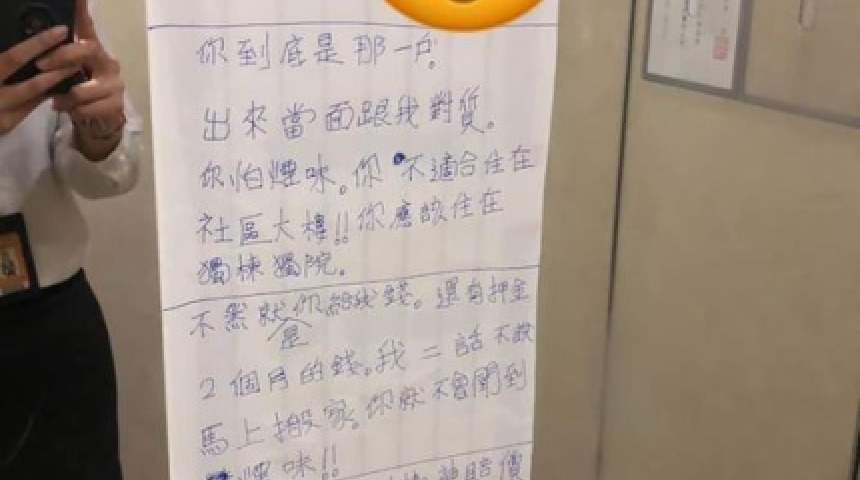 你到底是那一戶
出來當面跟我對質。
你怕煙味。你不適合住在
社區大樓!!你應該住在
獨棟獨院。
不然就是你給我錢。還有押金
2個月的錢。我二話不說
馬上搬家。你就不會聞到
煙味!!
賠償